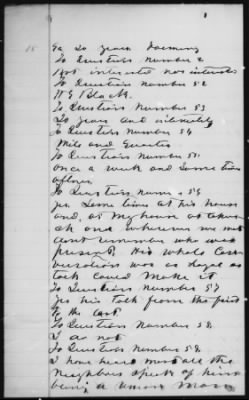 15
Ga 20 years Farming
To Question Number 2
Not interested nor interested
To Question Number 52
W G Black.
To Question Number 53
20 years and intimately
To Question Number 54
Mile and Quarter
To Question Number 55
once a week and Sometimes
oftener
To Question Number 56
yes Some times at his house
and, at my house at church
and wherever we met
dont remember who was
present, His whole Con
versation was as loyal as
talk could make it
To Question Number 57
yes his talk from the first
to the last
To Question Number 58
I do not
To Question Number 58
I have heard most all the
Neighbors speak of him
being a union man